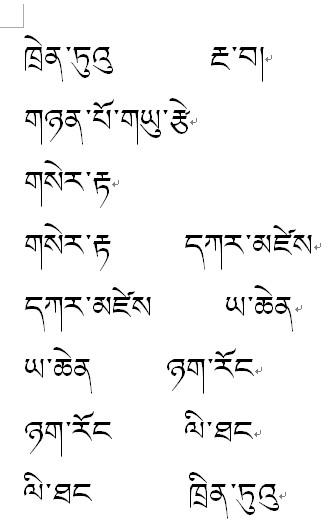 ཁྲེན་ཧྲུའུ རྫ་བ།
གཉན་པོ་གཡུ་རྩེ
གསེར་རྟ
གསེར་རྟ དཀར་མཛེས
དཀར་མཛེས ཡ་ཆེན
ཡ་ཆེན ཉག་རོང
ཉག་རོང ལི་ཐང
ལི་ཐང ཁྲིན་ཏུའུ